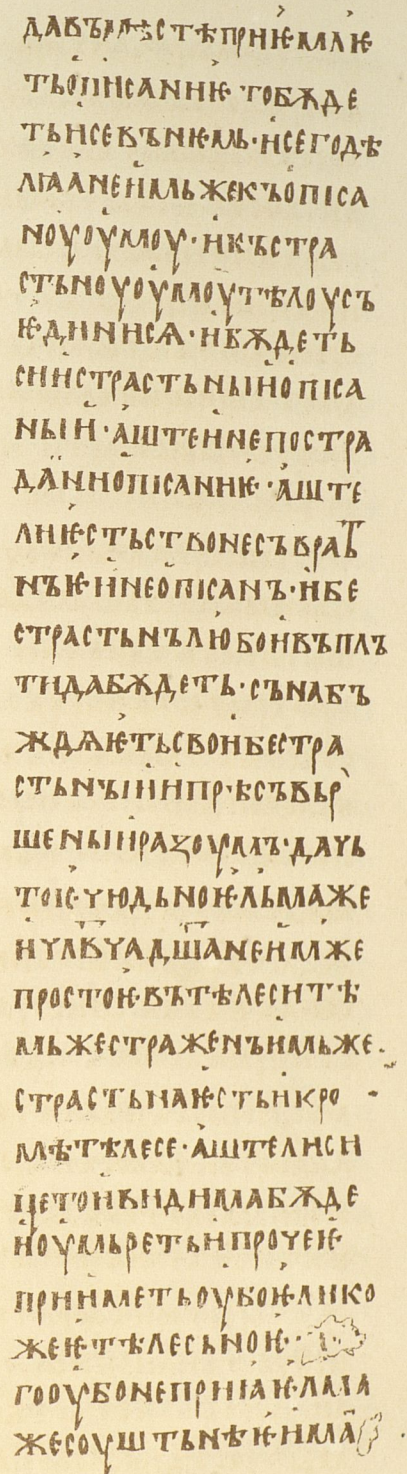 давъмѣстѣприѥмлѥ
тьописаниѥ·тобѫде
тьисевънѥмь·исегодѣ
лꙗанеимьжекъопіса
ноуоумоу·икъстра
стьноуоумоутѣлоусъ
ѥдинисѧ·ибѫдеть
сиистрастьныиопіса
ныи·аштеинепостра
даниописаниѥ·аште
лиѥстьствонесъврат
нъѥинеописанъ·ибе
страстьнълюбоивъплъ
тидабѫдеть·сънабъ
ждѫѥтьсвоибестра
стьнꙑиипрѣсъвьр
шенꙑиразоумъ·дачь
тоѥ·чюдьноѥльмаже
ичлвчадшанеимже
простоѥ·вътѣлеситѣ
мьжестраженъимьже·
страстьнаѥстьикро
мѣтѣлесе·аштелиси
цетоивидимабѫде
ноумьретьипрочеѥ
прииметьоубоѥлико
жеѥтѣлесьноѥ·
гооубонеприꙗѥлма
жесоуштьнѣѥима